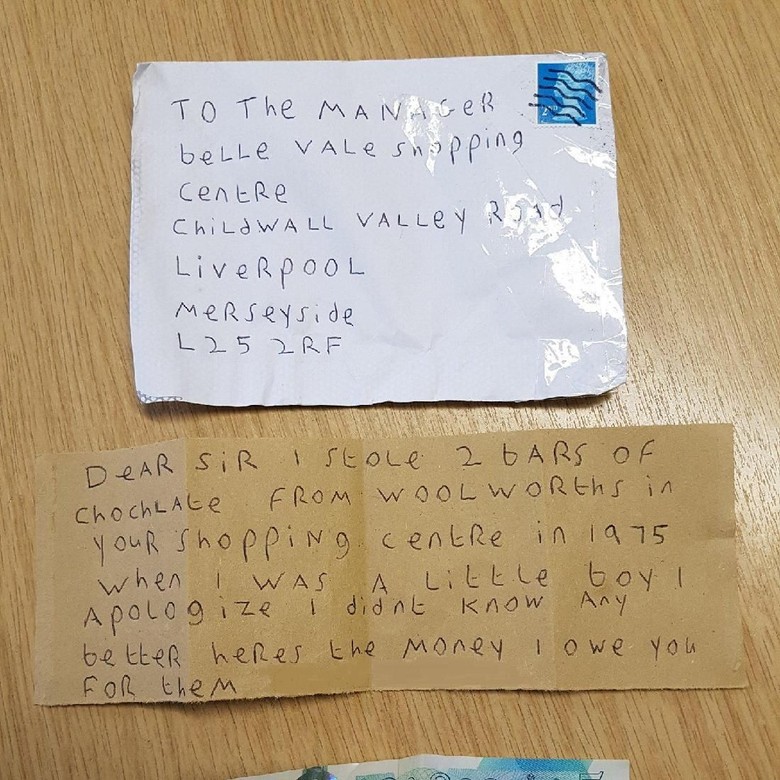 TO The MANAGeR
beLLe VALe shopping
CentRe
ChiLdWALL VALLey ROad
LiveRpOOL
MeRSeyside
L25 2RF
2ND
DeAR SiR I StOLe 2 bARS OF
ChochLAte FROM WOOLWORths in
yOuR Shopping centRe in 1975
when I WAS A Little boy I
ApoLogize I didnt know Any
betteR heRes the Money I owe you
FOR theM